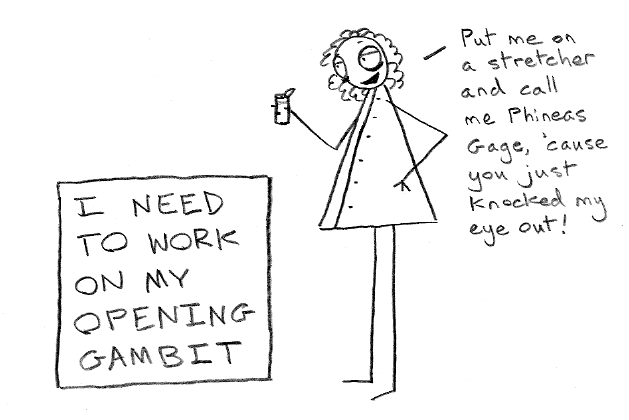 Put me on
a stretcher
and call
me Phineas
Gage, 'cause
you just
knocked my
eye out!
I NEED
TO WORK
ON MY
OPENING
GAMBIT